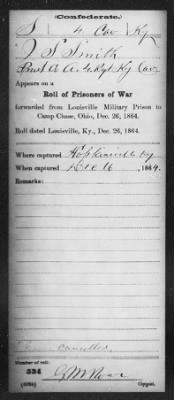 (Confederate.)
S 4 Cav Ky
J S Smith
4 Regt Ky Cav
Appears on a
Roll of Prisoners of War
forwarded from Louisville Military Prison to
Camp Chase, Ohio, Dec. 26, 1864.
Roll dated Louisville, Ky., Dec. 26, 1864.
Where captured Hopkinsville Ky
When captured Dec 16, 1864.
Remarks:
Cancelled.
Number of roll:
534
Copyist.